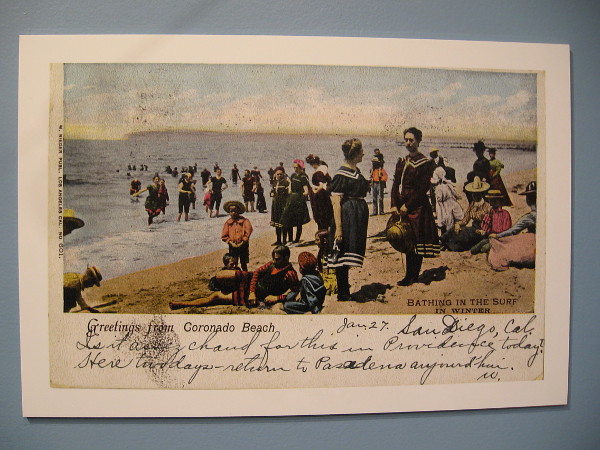 M. RIEDER PUBL. LOS ANGELES CAL. NO
BATHING IN THE SURF
IN WINTER
Greetings from Coronado Beach.
Jan 27. San Diego, Cal.
Is it chaud for this in Providence today?
Here two days - return to Pasadena aujourd'hui.